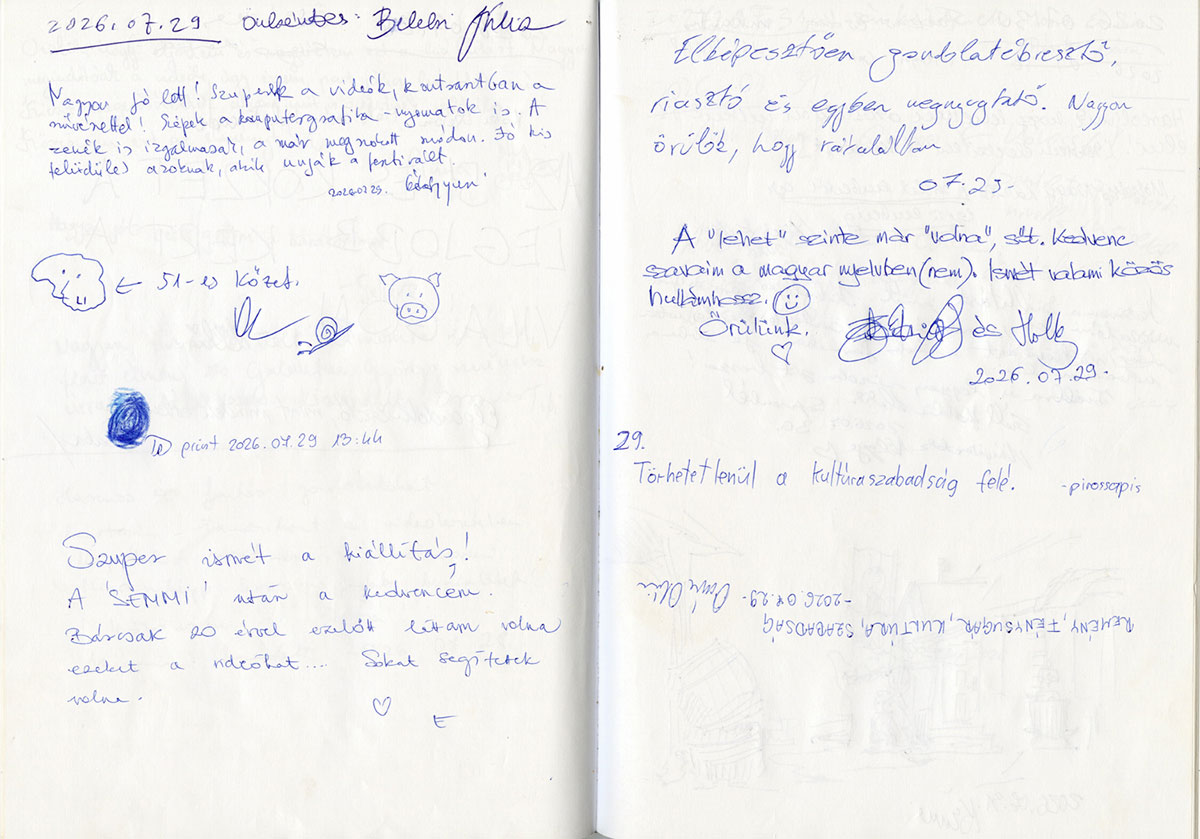 2026.07.29 Önkéntes: Beleli Júlia
Nagyon jó lett! Szuperek a videók, kontrasztban a
művészettel! Szépek a komputergrafika-nyomatok is. A
zenék is izgalmasak, a már megszokott módon. Jó kis
felüdülés azoknak, akik unják a fesztivált.
2026.07.29.
51-es Közet.
print 2026.07.29 13:44
Szuper ismét a kiállítás!
A 'SEMMI' után a kedvencem.
Bárcsak 20 évvel ezelőtt láttam volna
ezeket a videókat... Sokat segítettek
volna.
E
Elképesztően gondolatébresztő,
riasztó és egyben megnyugtató. Nagyon
örülök, hogy rátaláltam
07.29.
A "lehet" szinte már "volna", sőt. Kedvenc
szavaim a magyar nyelvben (nem). Ismét valami közös
hullámhossz.
Örülünk. és
2026.07.29.
29.
Törhetetlenül a kultúraszabadság felé. -pirossapis
REMÉNY, FÉNYSUGÁR, KULTÚRA, SZABADSÁG
-2026.07.29-